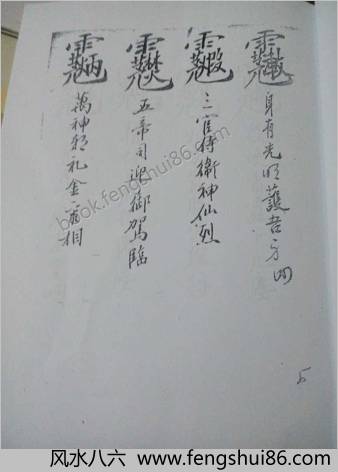 身有光明護吾方四
三官侍衛神仙烈
五帝司迎御駕臨
萬神礼金相
5
book.fengshui86.com
风水八六 www.fengshui86.com